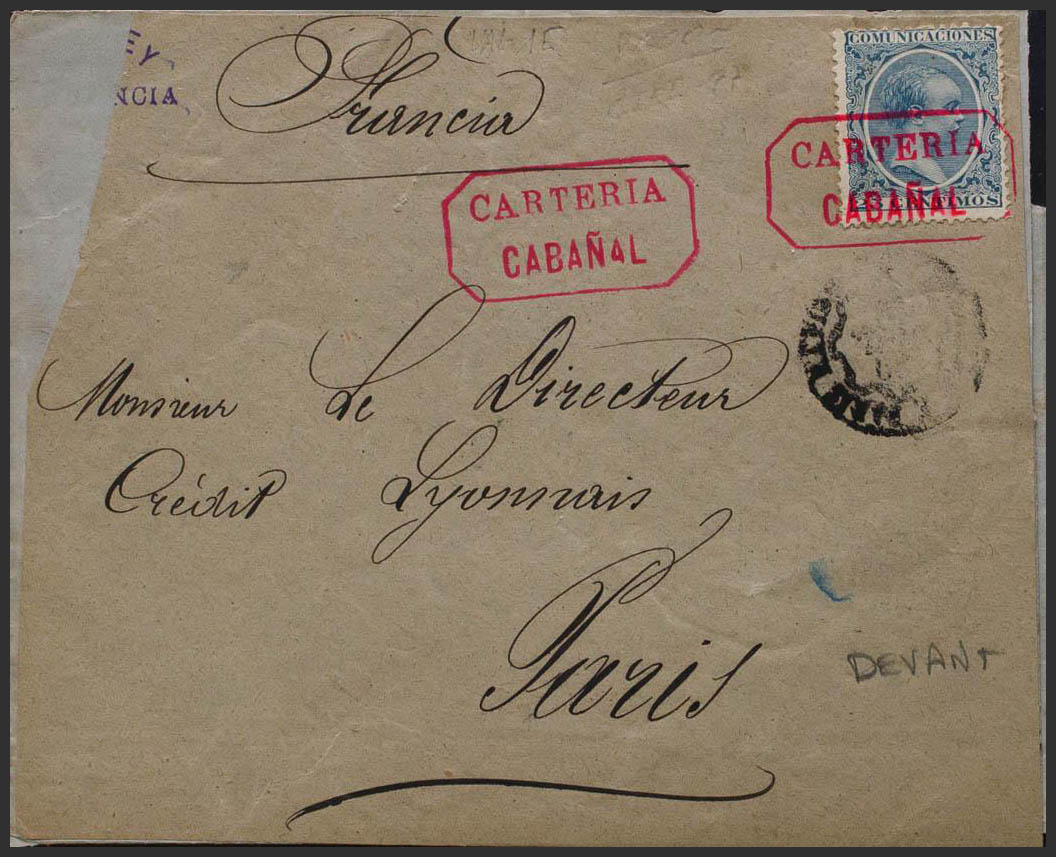 NCIA
Francia
COMUNICACIONES
CENTIMOS
CARTERIA
CABAÑAL
CARTERIA
CABAÑAL
Monsieur Le Directeur
Crédit Lyonnais
Paris
DEVANT